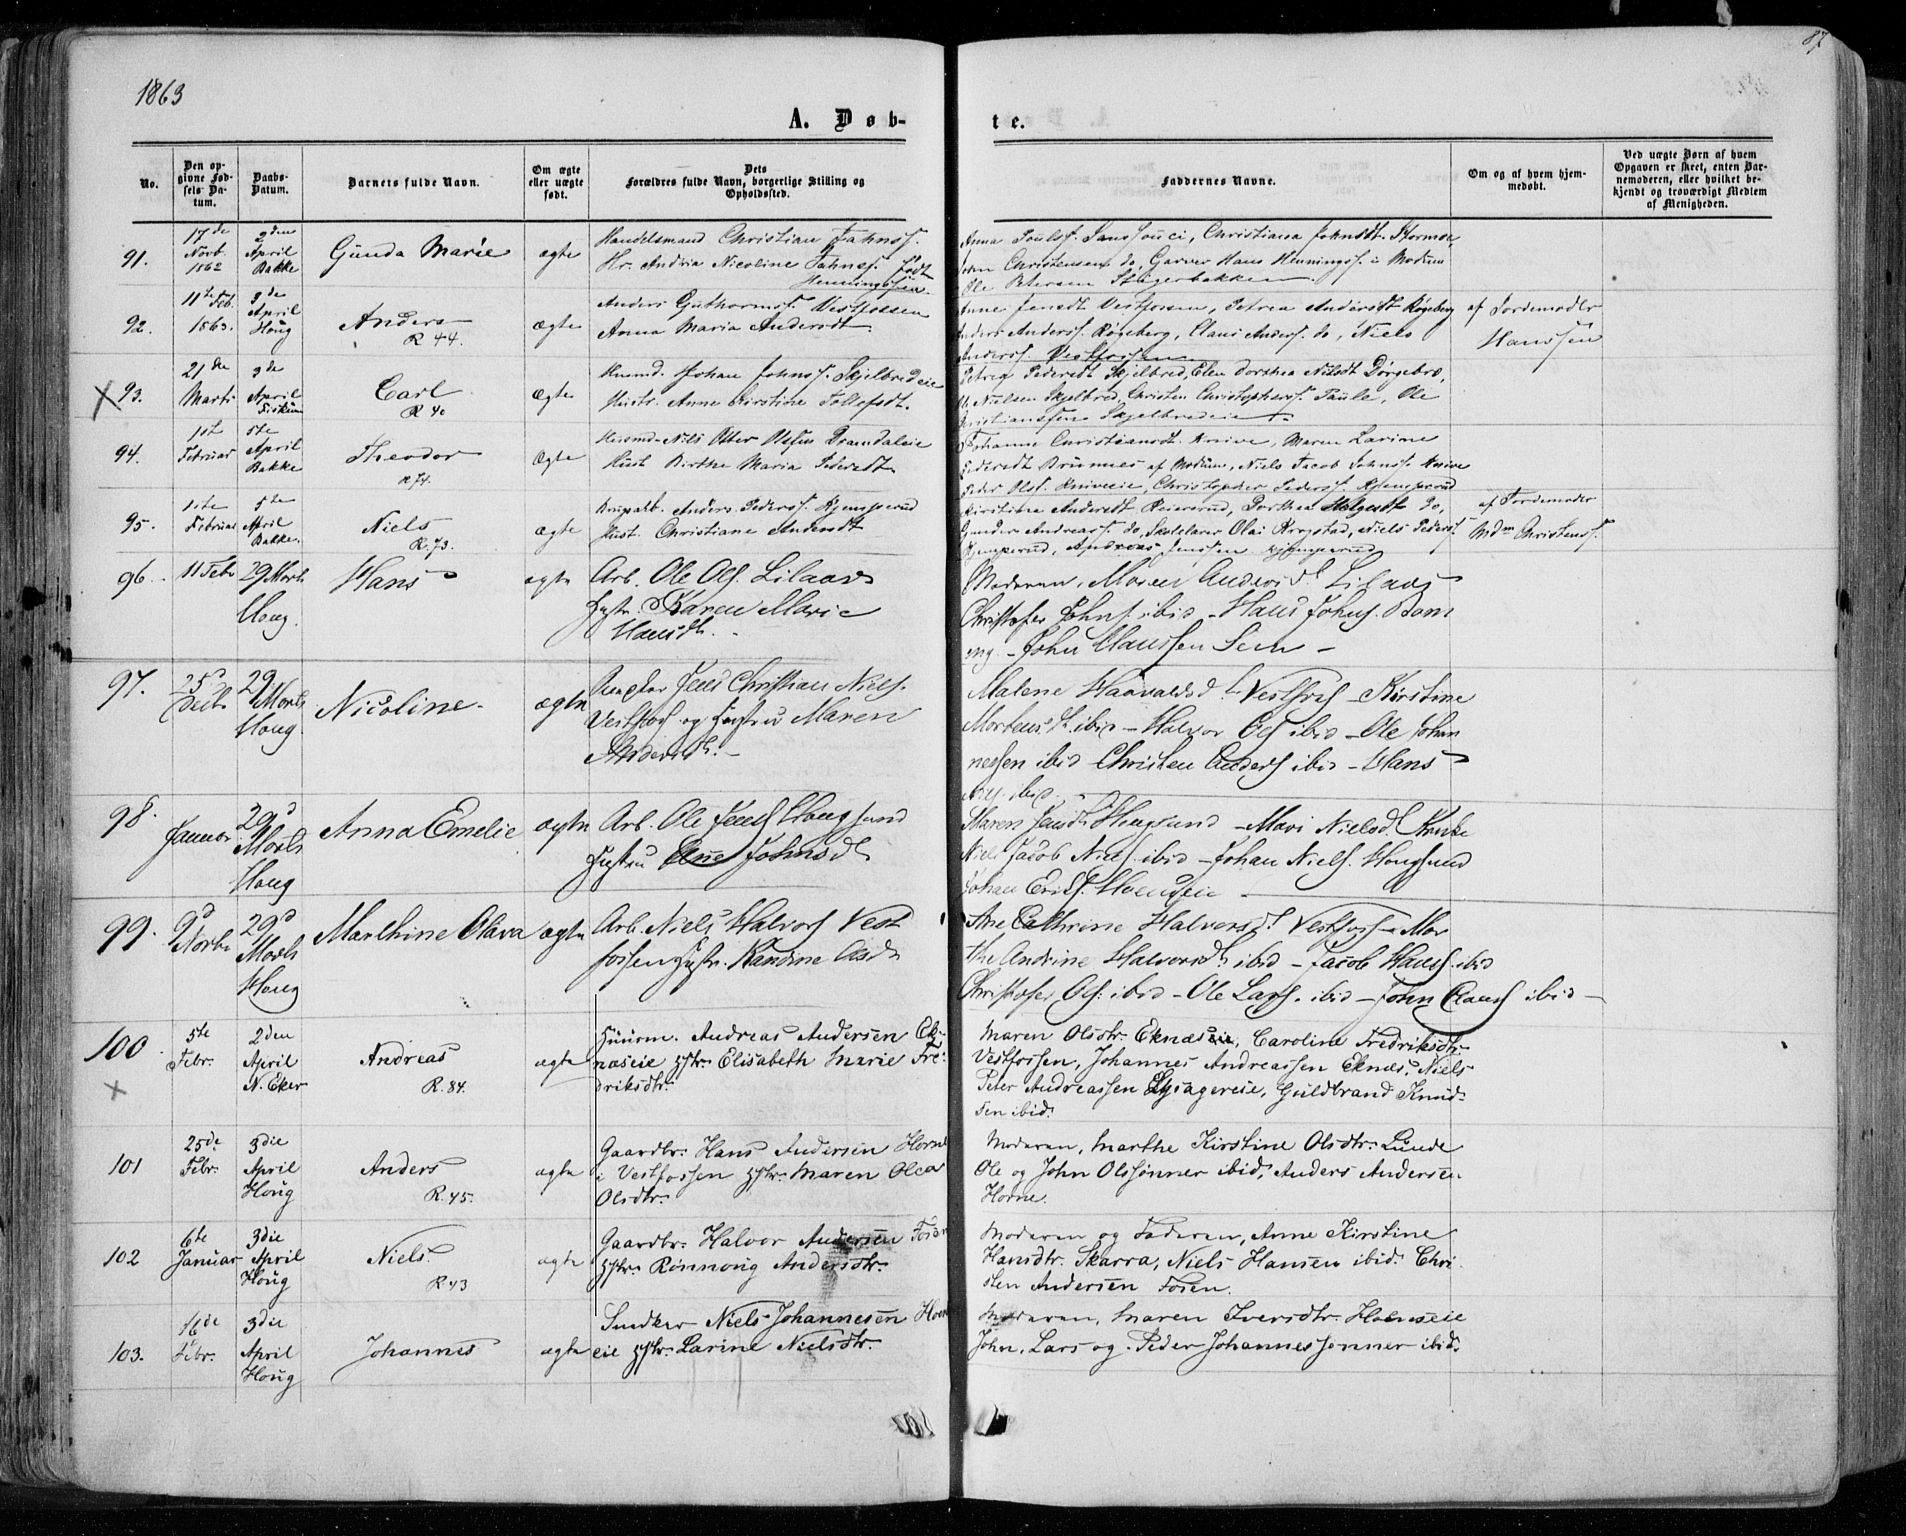 1863
87
A. Døb-
te.
No.
Den op-
givne Fød-
sels Da-
tum.
Daabs-
Datum.
Barnets fulde Navn.
Om ægte
eller uægte
født.
Dets
Forældres fulde Navn, borgerlige Stilling og
Opholdssted.
Faddernes Navne.
Om og af hvem hjem-
medøbt.
Ved uægte Børn af hvem
Opgaven er skeet, enten Bar-
nemoderen, eller hvilket be-
kjendt og troværdigt Medlem
af Menigheden.
91.
17de
Novb.
1862
2den
April
Bakke
Gunda Marie
ægte
Handelsmand Christian
Hr. Andria Nicoline født
Henningsen
Christiana Johnsdt. Stormoe,
Christensen do, Garver Hans Hennings. i Modum
Ole Petersen Stegerbakken
92.
11te Feb.
1863.
3de
April
Houg
Anders
R 44.
Ægte
Anders Guthorms. Vestfossen
Anna Maria Andersdt.
Anne Jensdt Vestfossen, Petrea Andersdt Røgeberg
Anders Anderss. Røgeberg, Claus Anderss. do, Niels
Anderss. Vestfossen
af Jordemoder
Hanssen
93.
21de
Marts
3de
April
Fiskum
Carl
R 40
Ægte
Huusmd. Johan Johns. Skjelbredeie
Hustr. Anne Kirstine Tollefsdt.
Petrea Pedersdt Skjelbred, Elen Dorthea Nilsdt Dørgebro,
Ole Nielsen Skjelbred, Christen Christophers. Paule, Ole
Christianssen Skjelbredeie
94.
1ste
Februar
5te
April
Bakke
Theodor
R 74.
Ægte
Huusmd. Nils Otter Olssen
Hust. Birthe Maria Pedersdt.
Johanne Christiansdt. Knive, Maren Larine
Pedersdt Brunnæs af Modum, Niels Jacob Johns. Knive
Peder Ols. Kniveeie, Christopher Peders. Kjemperud
95.
1ste
Februar
5te
April
Bakke.
Niels
R. 73.
ægte
Anders Peders. Kjemperud
Hust. Christiane Andersdt
Kirstine Andersdt Dorthea Helgesdt do,
Gunder Andreas. do, Skolelærer Olai Krogstad, Niels Peders.
Kjemperud, Andreas Jenssen Kjemperud
af Jordemoder
Mdm Christens.
96.
11 Febr
29 Marts
Houg.
Hans
ægte
Arb. Ole Ols. Lilaas
Hustr. Karen Marie
Hansdt.
Moderen, Maren Andersdt Lilaas
Christofer Johns. ibid - Hans Johns. Bom
eng. - John Claussen Sem -
97.
25d
29
Marts
Houg.
Nicoline.
ægte
Jens Christian Niels.
Vestfoss og Hustru Maren
Andersdt. -
Malene Haavaldsdt. Vestfoss - Kirstine
Mortensdt. ibid - Halvor Ols ibid - Ole Johan
nessen ibid Christen Anders ibid - Hans
Niels. ibid.
98.
Januar
29d
Marts
Houg
Anna Emelie
ægte
Arb. Ole Jens Hougsund
Hustru Ane Johnsdt
Maren Jensdt. Hougsund - Mari Nielsdt.
Niels Jacob Niels. ibid - Johan Niels. Hougsund
Johan Ericks.
99.
9d
Novbr
29d
Marts
Houg
Marthine Olava
ægte
Arb. Niels Halvors Vest
fossen Hustr. Randine Olsdt
Ane Cathrine Halvorsdt. Vestfoss - Mar
the Andrine Halvorsdt. ibid - Jacob Hans. ibid
Christofer Ols: ibid - Ole Lars. ibid - John Claus ibid -
100
5te
Febr.
2den
April
N. Eker
Andreas
R. 84.
ægte
Huusm. Andreas Andersen Ek-
næseie Hstr. Elisabeth Marie Fre-
driksdtr.
Maren Olsdtr. Eknæseie, Caroline Fredriksdtr.
Vestfossen, Johannes Andreassen Eknæs, Niels
Peter Andreassen Guldbrand Knud-
sen ibid.
101
25de
Febr.
3die
April
Houg
Anders
R. 45.
ægte
Gaardbr. Hans Andersen Horne
i Vestfossen Hstr. Maren Olea
Olsdtr.
Moderen, Marthe Kirstine Olsdtr. Lunde
Ole og John Olssønner ibid, Anders Andersen
Horne.
102
6te
Januar
3die
April
Houg
Niels.
R. 43
ægte
Gaardbr. Halvor Andersen Fosen
Hstr. Rønnoug Andersdtr.
Moderen og Faderen, Anne Kirstine
Hansdtr. Skarra, Niels Hansen ibid. Chri-
sten Andersen Fosen.
103.
16de
Febr.
3die
April
Houg
Johannes
ægte
Snedker Niels Johannesen
eie Hstr. Larine Nielsdtr.
Moderen, Maren Iversdtr. Hoenseie
John, Lars og Peder Johannessønner ibid.